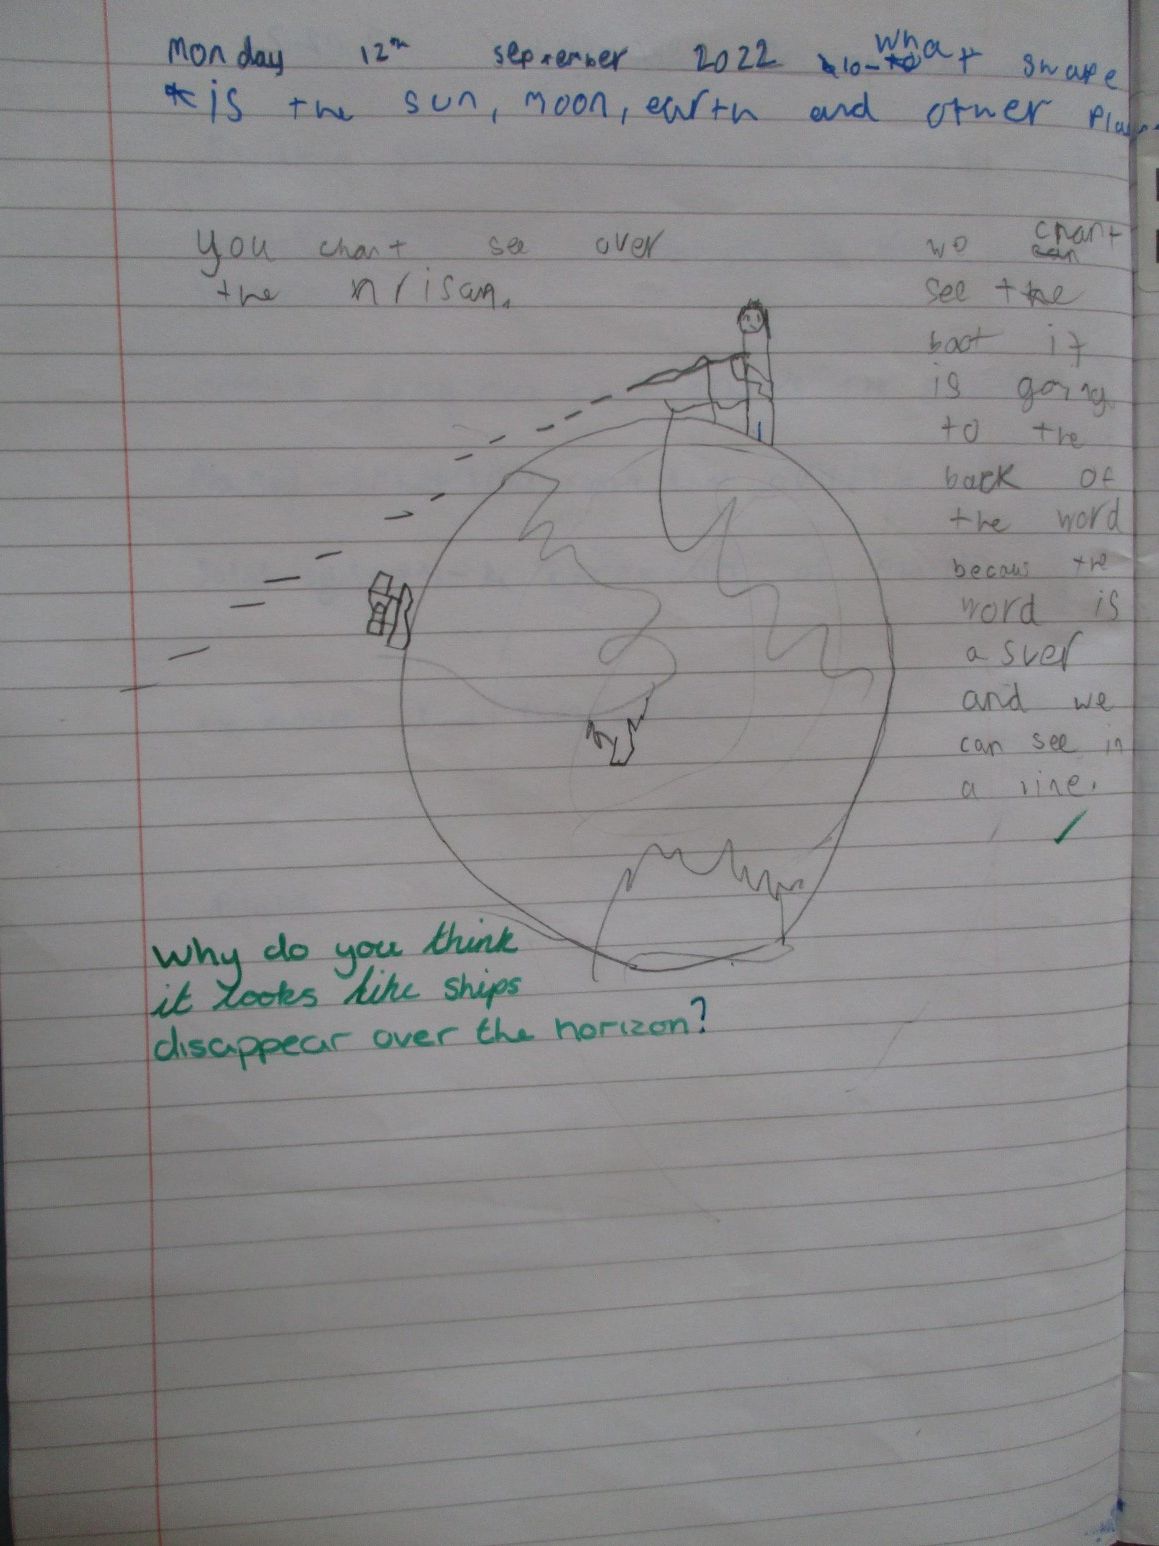 Monday 12th september 2022 What shape
is the sun, moon, earth and other
you chant see over
the
we chant
see the
boot it
is going
to the
back of
the word
becaus the
word is
a sver
and we
can see in
a line.
Why do you think
it looks like ships
disappear over the horizon?